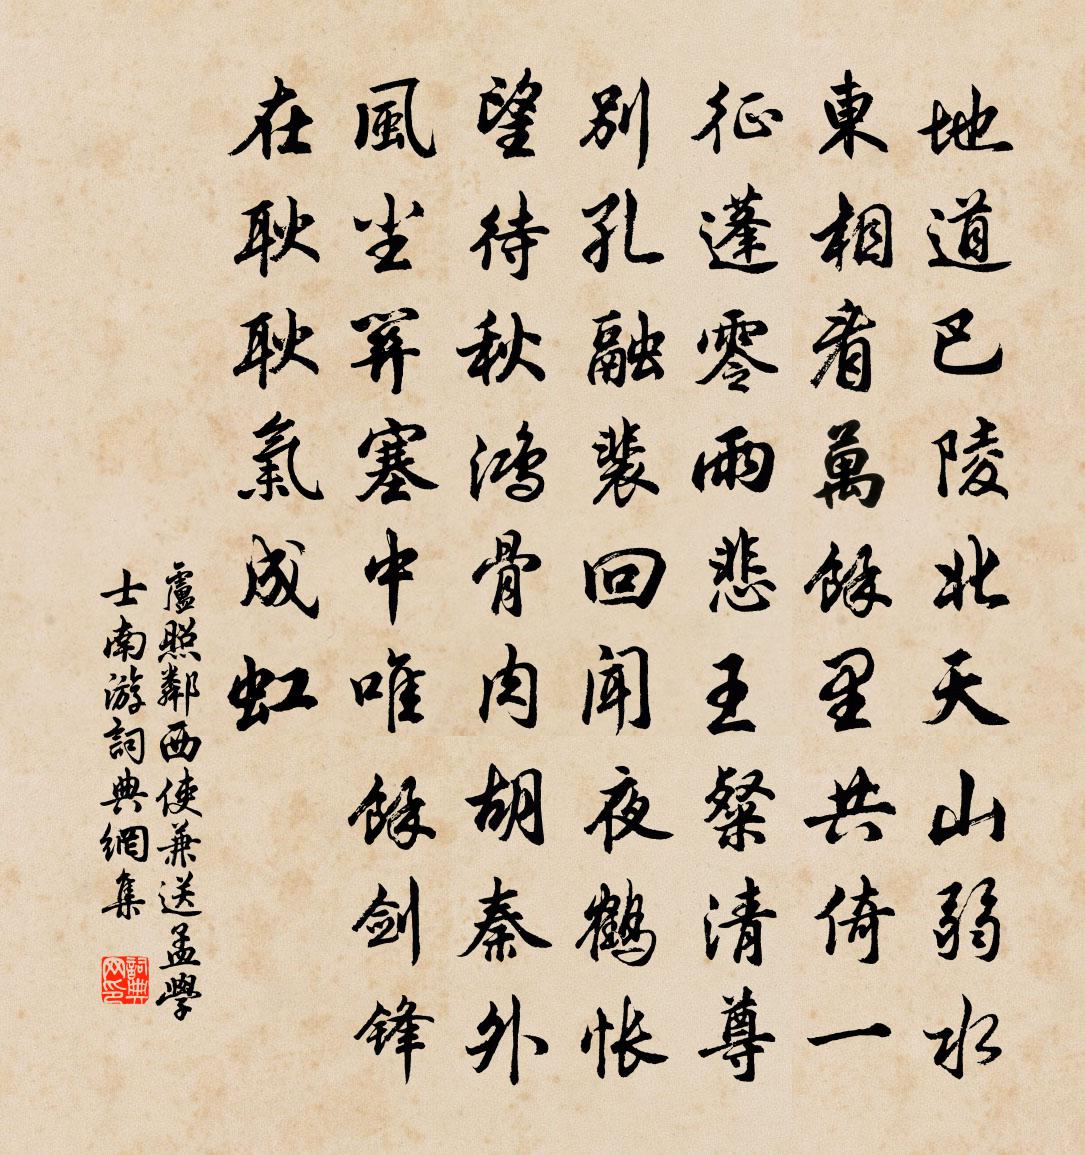 地道巴陵北天山弱水
東相看萬餘里共倚一
征蓬零雨悲王粲清尊
別孔融裴回聞夜鶴悵
望待秋鴻骨肉胡秦外
風尘關塞中唯餘劍鋒
在耿耿氣成虹
盧照鄰西使兼送孟學
士南游詞典網集
詞典网印